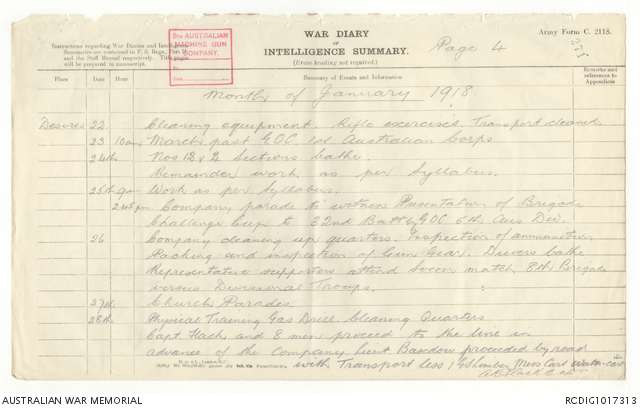 WAR DIARY
or
INTELLIGENCE SUMMARY.
(Erase heading not required.)
Page 4
Army Form C. 2118.
Instructions regarding War Diaries and Intelligence
Summaries are contained in F. S. Regs., Part II.
and the Staff Manual respectively. Title pages
will be prepared in manuscript.
AUSTRALIAN
MACHINE GUN
COMPANY.
Place Date Hour Summary of Events and Information Remarks and references to Appendices
Month of January 1918
Desvres 22 Cleaning equipment. Rifle exercises. Transport cleaned
23 10am March past G.O.C. 1st Australian Corps
24th Nos 1 & 2 Sections bathe.
Remainder work as per Syllabus.
25th 9am Work as per Syllabus.
2.45pm Company parade to witness Presentation of Brigade
Challenge Cup to 32nd Batt by GOC 5th Aus Div.
26 Company cleaning up quarters. Inspection of ammunition
Packing and inspection of Gun Gear. Drivers bathe
Representative supporters attend soccer match 8th Brigade
versus Divisional Troops.
27th Church Parades
28th Physical Training Gas Drill. Cleaning Quarters
Capt and 8 men proceed to the line in
advance of the Company Lieut proceeded by road
with Transport less 1 Mess Cart water-cart
AUSTRALIAN WAR MEMORIAL
RCDIG1017313